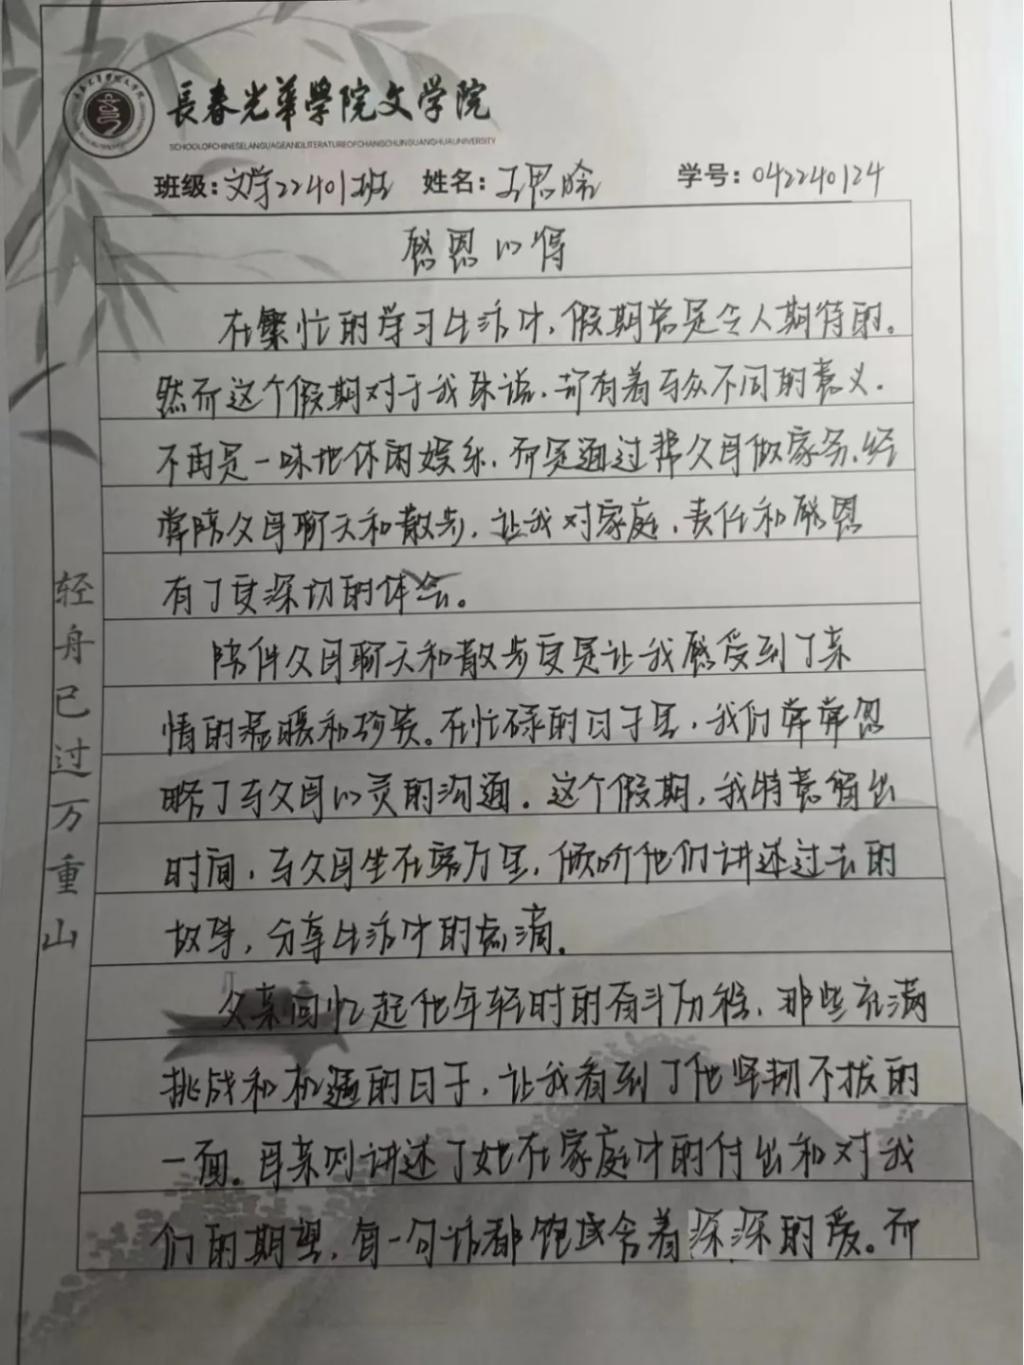 長春光華學院文学院
SCHOOLOFCHINESELANGUAGEANDLITERATUREOFCHANGCHUNGUANGHUAUNIVERSITY
班级:文学22401班 姓名:王思晗 学号:042240124
感恩心得
在繁忙的学习生活中,假期总是令人期待的。
然而这个假期对于我来说,却有着与众不同的意义.
不再是一味地休闲娱乐,而是通过帮父母做家务、经
常陪父母聊天和散步,让我对家庭、责任和感恩
有了更深切的体会。
陪伴父母聊天和散步更是让我感受到了亲
情的温暖和珍贵。在忙碌的日子里,我们常常忽
略了与父母心灵的沟通。这个假期,我特意留出
时间,与父母坐在客厅里,倾听他们讲述过去的
故事,分享生活中的点滴。
父亲回忆起他年轻时的奋斗历程,那些充满
挑战和机遇的日子,让我看到了他坚韧不拔的
一面。母亲则讲述了她在家庭中的付出和对我
们的期望,每一句话都饱含着深深的爱。而
轻舟已过万重山